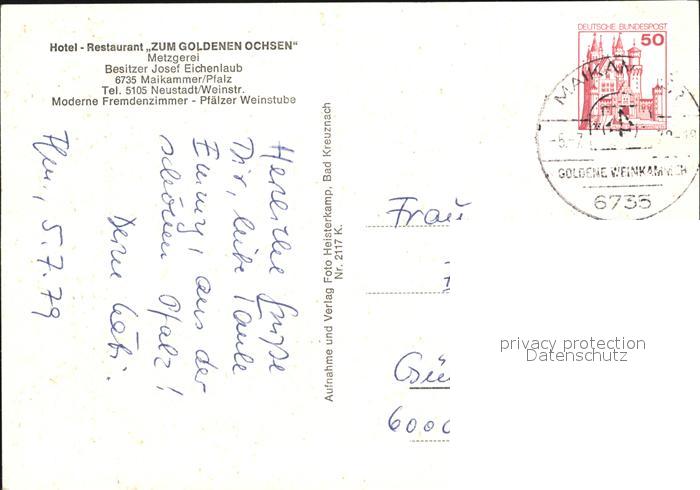 Hotel - Restaurant „ZUM GOLDENEN OCHSEN“
Metzgerei
Besitzer Josef Eichenlaub
6735 Maikammer/Pfalz
Tel. 5105 Neustadt/Weinstr.
Moderne Fremdenzimmer - Pfälzer Weinstube
Herzliche Grüße
Dir, liebe Tante
Emmy, aus der
schönen Pfalz!
Deine
5.7.79
Aufnahme und Verlag Foto Heisterkamp, Bad Kreuznach
Nr. 2117 K.
DEUTSCHE BUNDESPOST
50
MAIKAM
-5.-7.
GOLDENE WEINKAMMER
6735
Frau
privacy protection
Datenschutz
Gü
6000